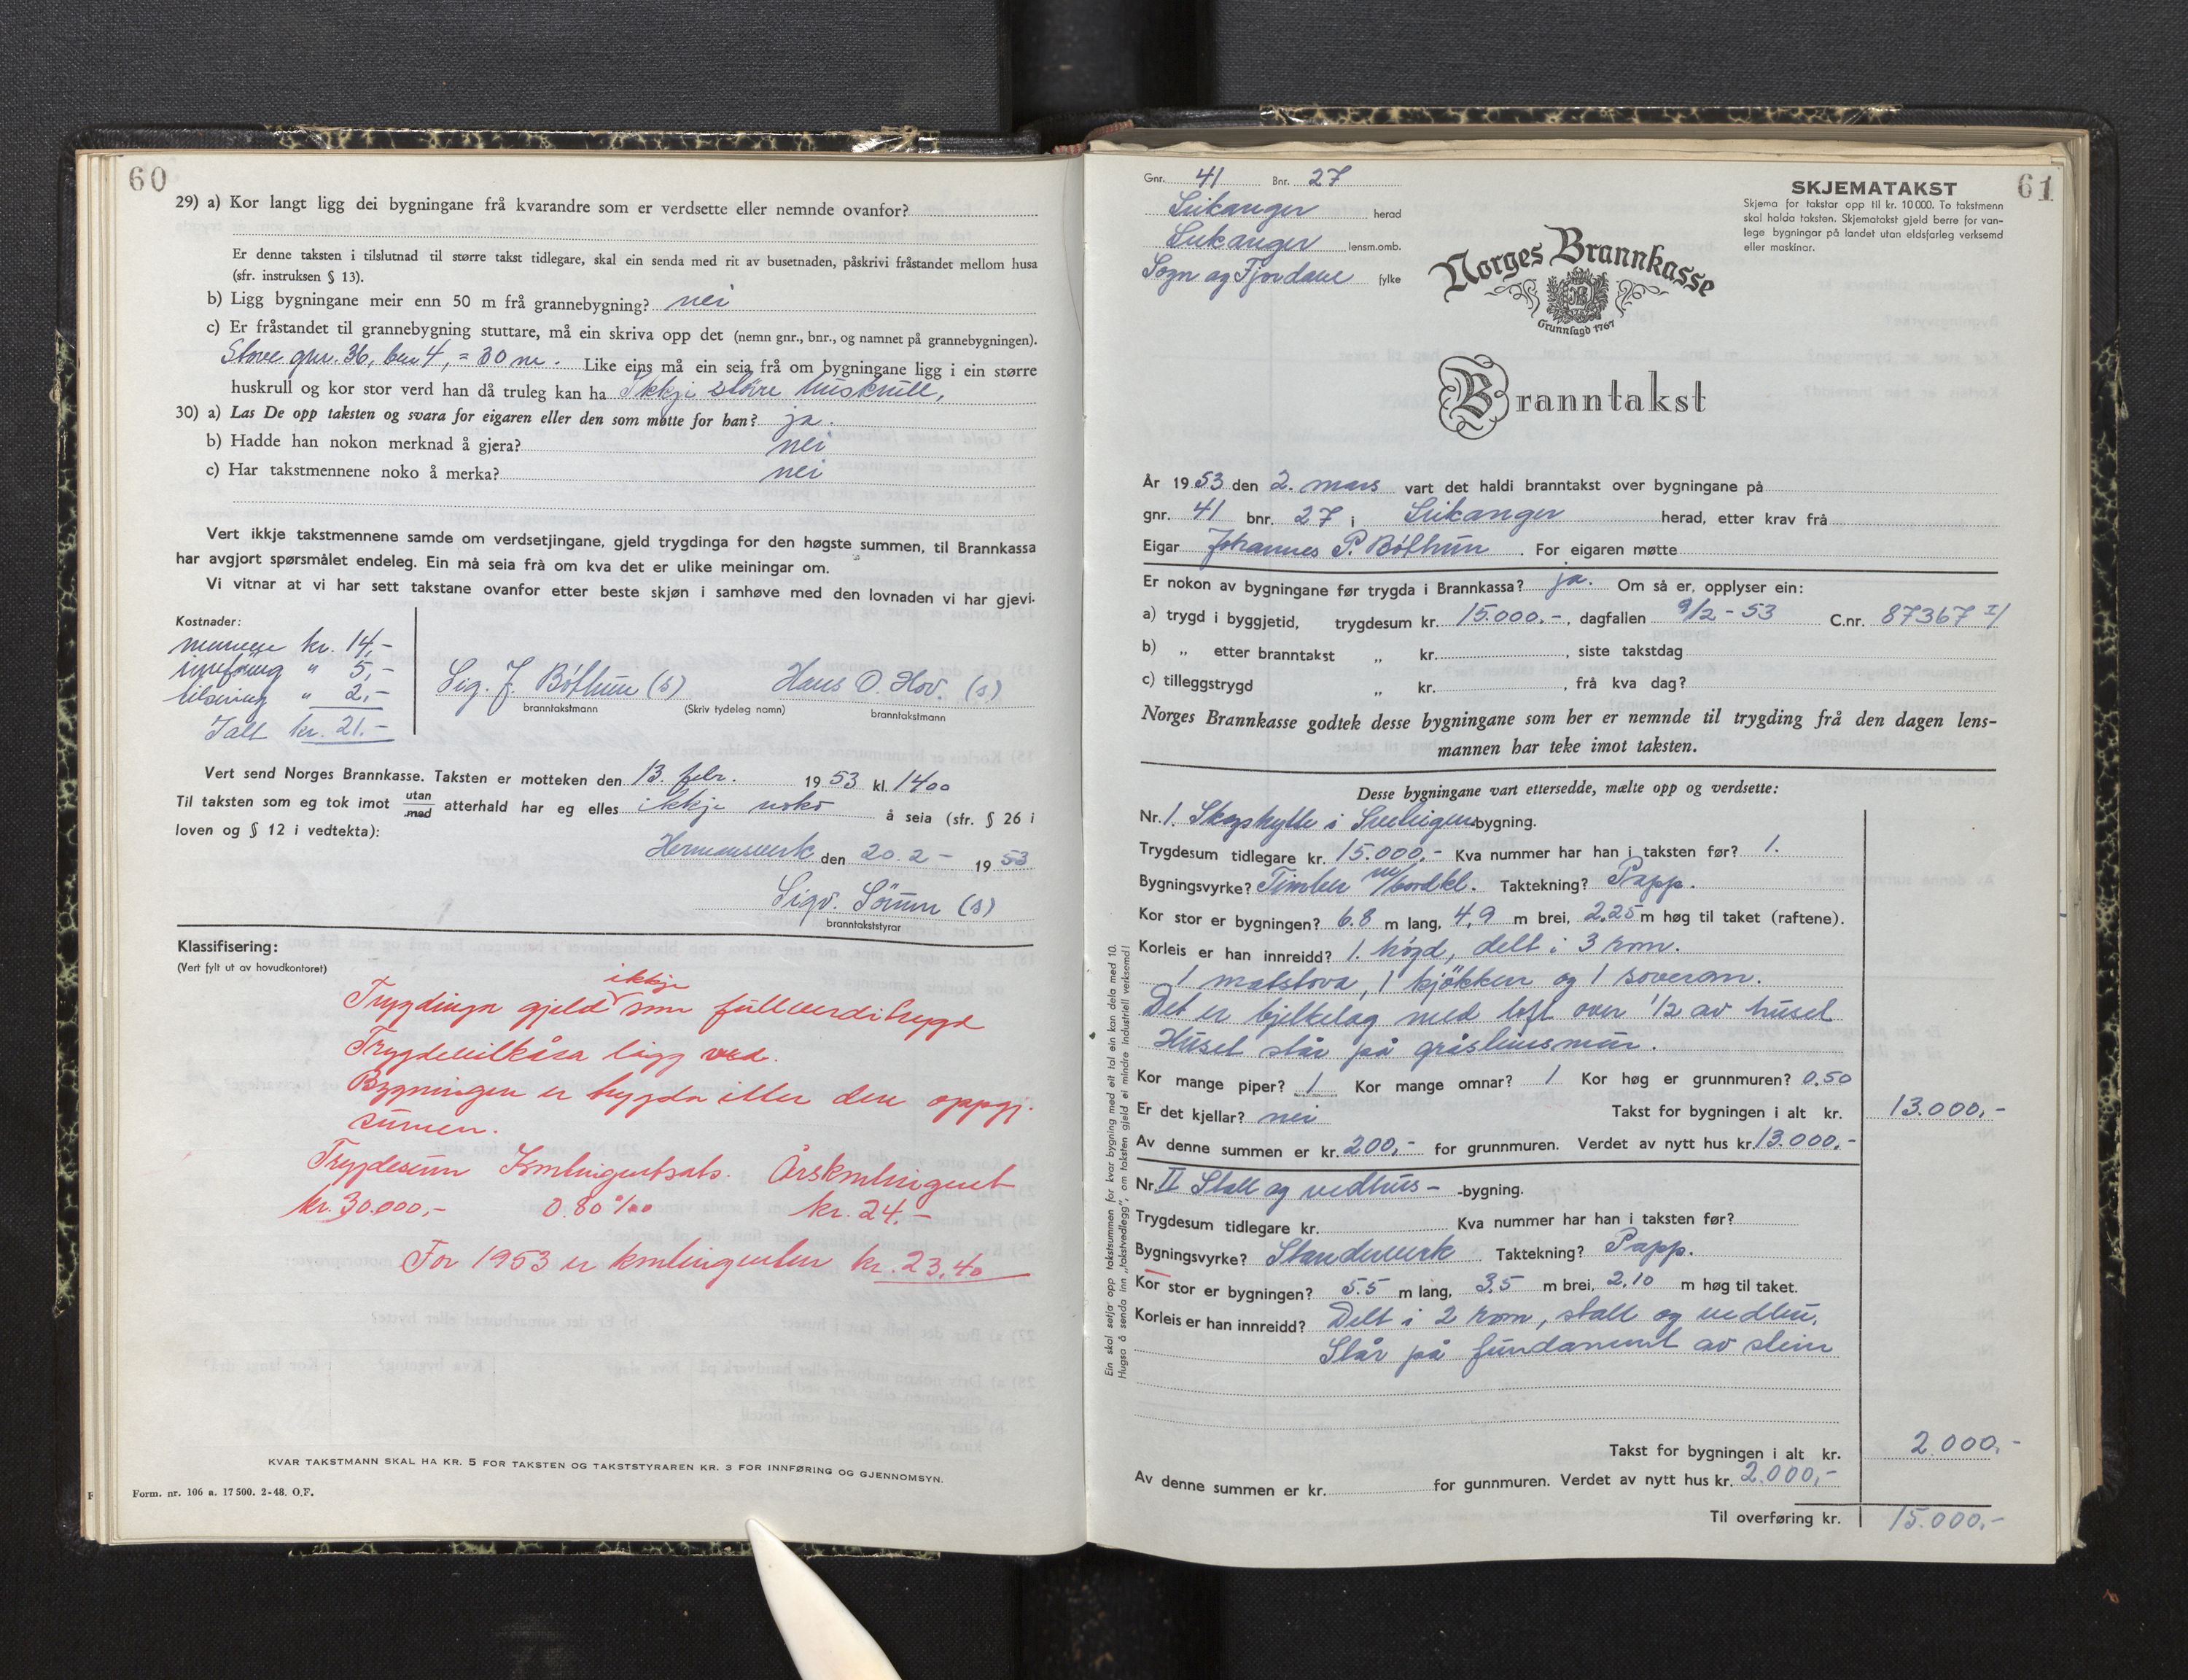 60
29) a) Kor langt ligg dei bygningane frå kvarandre som er verdsette eller nemnde ovanfor?
Er denne taksten i tilslutnad til større takst tidlegare, skal ein senda med rit av busetnaden, påskrivi fråstandet mellom husa
(sfr. instruksen § 13).
b) Ligg bygningane meir enn 50 m frå grannebygning? nei
c) Er fråstandet til grannebygning stuttare, må ein skriva opp det (nemn gnr., bnr., og namnet på grannebygningen).
Stove gnr. 36, bnr 4, = 30 m. Like eins må ein seia frå om bygningane ligg i ein større
huskrull og kor stor verd han då truleg kan ha Ikkje större huskrull,
30) a) Las De opp taksten og svara for eigaren eller den som møtte for han? ja.
b) Hadde han nokon merknad å gjera? nei
c) Har takstmennene noko å merka? nei
Vert ikkje takstmennene samde om verdsetjingane, gjeld trygdinga for den høgste summen, til Brannkassa
har avgjort spørsmålet endeleg. Ein må seia frà om kva det er ulike meiningar om.
Vi vitnar at vi har sett takstane ovanfor etter beste skjøn i samhøve med den lovnaden vi har gjevi.
Kostnader:
mennene kr. 14,-
innföring " 5,-
" 2,-
Ialt kr. 21.-
Sig. J. Böthun (s) Hans O. Hov. (s)
branntakstmann (Skriv tydeleg namn) branntakstmann
Vert send Norges Brannkasse. Taksten er motteken den 13. febr. 1953 kl. 1400
Til taksten som eg tok imot utan/med atterhald har eg elles ikkje noko å seia (sfr. § 26 i
loven og § 12 i vedtekta):
Hermansverk den 20.2- 1953
Sigv. (s)
branntakststyrar
Klassifisering:
(Vert fylt ut av hovudkontoret)
ikkje
Trygdinga gjeld som fullverditrygd
Trygdevilkåra ligg ved.
Bygningen er bygda etter den oppgj.
sumen.
Trygdesum Kontingentsats. Årskontingent
kr. 30.000,- 0.80 ‰ kr. 24.-
For 1953 er kontingenten kr. 23,40
KVAR TAKSTMANN SKAL HA KR. 5 FOR TAKSTEN OG TAKSTSTYRAREN KR. 3 FOR INNFØRING OG GJENNOMSYN.
Form. nr. 106 a. 17500. 2-48. O.F.
61
Gnr. 41 Bnr. 27
Leikanger herad
Leikanger lensm.omb.
Sogn og Fjordane fylke
SKJEMATAKST
Skjema for takstar opp til kr. 10 000. To takstmenn
skal halda taksten. Skjematakst gjeld berre for van-
lege bygningar på landet utan eldsfarleg verksemd
eller maskinar.
Norges Brannkasse
Grunnlagd 1767
Branntakst
År 1953 den 2. mars vart det haldi branntakst over bygningane på
gnr. 41 bnr. 27 i Leikanger herad, etter krav frå
Eigar Johannes P. Böthun . For eigaren møtte
Er nokon av bygningane før trygda i Brannkassa? ja. Om så er, opplyser ein:
a) trygd i byggjetid, trygdesum kr. 15.000.-, dagfallen 9/2-53 C.nr. 87367 I/
b) „ etter branntakst „ kr. , siste takstdag
c) tilleggstrygd „ kr. , frå kva dag?
Norges Brannkasse godtek desse bygningane som her er nemnde til trygding frå den dagen lens-
mannen har teke imot taksten.
Desse bygningane vart ettersedde, mælte opp og verdsette:
Nr. 1. Skogshytte i -bygning.
Trygdesum tidlegare kr. 15.000,- Kva nummer har han i taksten før? 1.
Bygningsvyrke? Timber m/bordkl. Taktekning? Papp.
Kor stor er bygningen? 6.8 m lang, 4,9 m brei, 2,25 m høg til taket (raftene).
Korleis er han innreidd? 1. högd, delt i 3 rom.
1 matstova, 1 kjökken og 1 soverom.
Det er bjelkelag med loft over 1/2 av huset
Huset står på gråsteinsmur.
Kor mange piper? 1 Kor mange omnar? 1 Kor høg er grunnmuren? 0.50
Er det kjellar? nei Takst for bygningen i alt kr. 13.000,-
Av denne summen er kr. 200,- for grunnmuren. Verdet av nytt hus kr. 13.000,-
Nr. II Stall og vedhus- -bygning.
Trygdesum tidlegare kr. Kva nummer har han i taksten før?
Bygningsvyrke? Standerverk Taktekning? Papp.
Kor stor er bygningen? 5.5 m lang, 3,5 m brei, 2,10 m høg til taket.
Korleis er han innreidd? Delt i 2 rom, stall og vedhu.
Står på fundament av stein
Takst for bygningen i alt kr. 2.000,-
Av denne summen er kr. for gunnmuren. Verdet av nytt hus kr. 2.000,-
Til overføring kr. 15.000,-
Ein skal setja opp takstsummen for kvar bygning med eit tal ein kan dela med 10.
Hugsa å senda inn „takstvedlegg", om taksten gjeld ei mindre industriell verksemd!